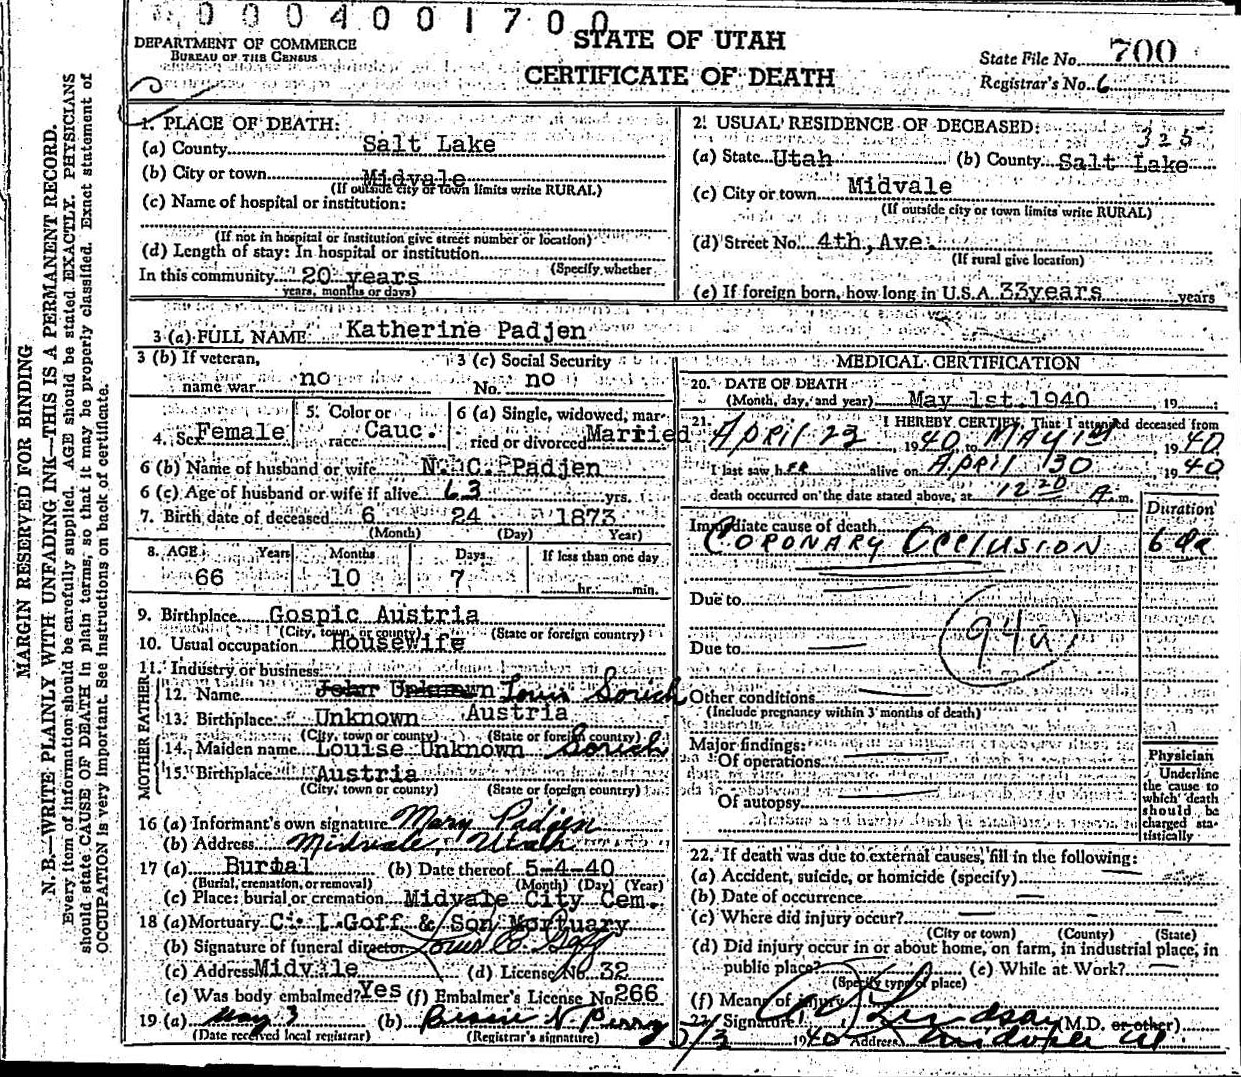 0 0 0 4 0 0 1 7 0 0
DEPARTMENT OF COMMERCE
BUREAU OF THE CENSUS
STATE OF UTAH
CERTIFICATE OF DEATH
State File No. 700
Registrar's No. 6
MARGIN RESERVED FOR BINDING
N. B.—WRITE PLAINLY WITH UNFADING INK—THIS IS A PERMANENT RECORD.
Every item of information should be carefully supplied. AGE should be stated EXACTLY. PHYSICIANS
should state CAUSE OF DEATH in plain terms, so that it may be properly classified. Exact statement of
OCCUPATION is very important. See instructions on back of certificate.
1. PLACE OF DEATH:
(a) County Salt Lake
(b) City or town Midvale
(If outside city or town limits write RURAL)
(c) Name of hospital or institution:
(If not in hospital or institution give street number or location)
(d) Length of stay: In hospital or institution
(Specify whether
In this community 20 years
years, months or days)
2. USUAL RESIDENCE OF DECEASED:
325
(a) State Utah (b) County Salt Lake
(c) City or town Midvale
(If outside city or town limits write RURAL)
(d) Street No. 4th, Ave.
(If rural give location)
(e) If foreign born, how long in U.S.A. 33years years
3 (a) FULL NAME Katherine Padjen
3 (b) If veteran,
name war no
3 (c) Social Security
No. no
4. Sex Female
5. Color or
race Cauc.
6 (a) Single, widowed, mar-
ried or divorced Married
6 (b) Name of husband or wife N. C. Padjen
6 (c) Age of husband or wife if alive 63 yrs.
7. Birth date of deceased 6 24 1873
(Month) (Day) Year)
8. AGE Years Months Days If less than one day
66 10 7 hr. min.
9. Birthplace Gospic Austria
(City, town, or county) (State or foreign country)
10. Usual occupation Housewife
11. Industry or business
FATHER
12. Name John Unknown Louis Sorich
13. Birthplace Unknown Austria
(City, town or county) (State or foreign country)
MOTHER
14. Maiden name Louise Unknown Sorich
15. Birthplace Austria
(City, town or county) (State or foreign country)
16 (a) Informant's own signature Mary Padjen
(b) Address Midvale, Utah
17 (a) Burial (b) Date thereof 5-4-40
(Burial, cremation, or removal) (Month) (Day) (Year)
(c) Place: burial or cremation Midvale City Cem.
18 (a) Mortuary C. L Goff & Son Mortuary
(b) Signature of funeral director Louis C. Goff
(c) Address Midvale (d) License No. 32
(e) Was body embalmed? Yes (f) Embalmer's License No 266
19 (a) May 3 (b) Bessie N Perry
(Date received local registrar) (Registrar's signature)
MEDICAL CERTIFICATION
20. DATE OF DEATH
(Month, day, and year) May 1st.1940 , 19
21. I HEREBY CERTIFY, That I attended deceased from
April 23 1940, to May 1st, 1940
I last saw her alive on April 30 1940
death occurred on the date stated above, at 12 20 A. m.
Duration
Immediate cause of death
Coronary Occlusion 6 da
Due to
94a
Due to
Other conditions
(Include pregnancy within 3 months of death)
Major findings:
Of operations
Of autopsy
Physician
Underline
the cause to
which death
should be
charged sta-
tistically
22. If death was due to external causes, fill in the following:
(a) Accident, suicide, or homicide (specify)
(b) Date of occurrence
(c) Where did injury occur?
(City or town) (County) (State)
(d) Did injury occur in or about home, on farm, in industrial place, in
public place? (e) While at Work?
(Specify type of place)
(f) Means of injury
23. Signature Lindsay (M.D. or other)
5/3 1940 Address Midvale Ut.